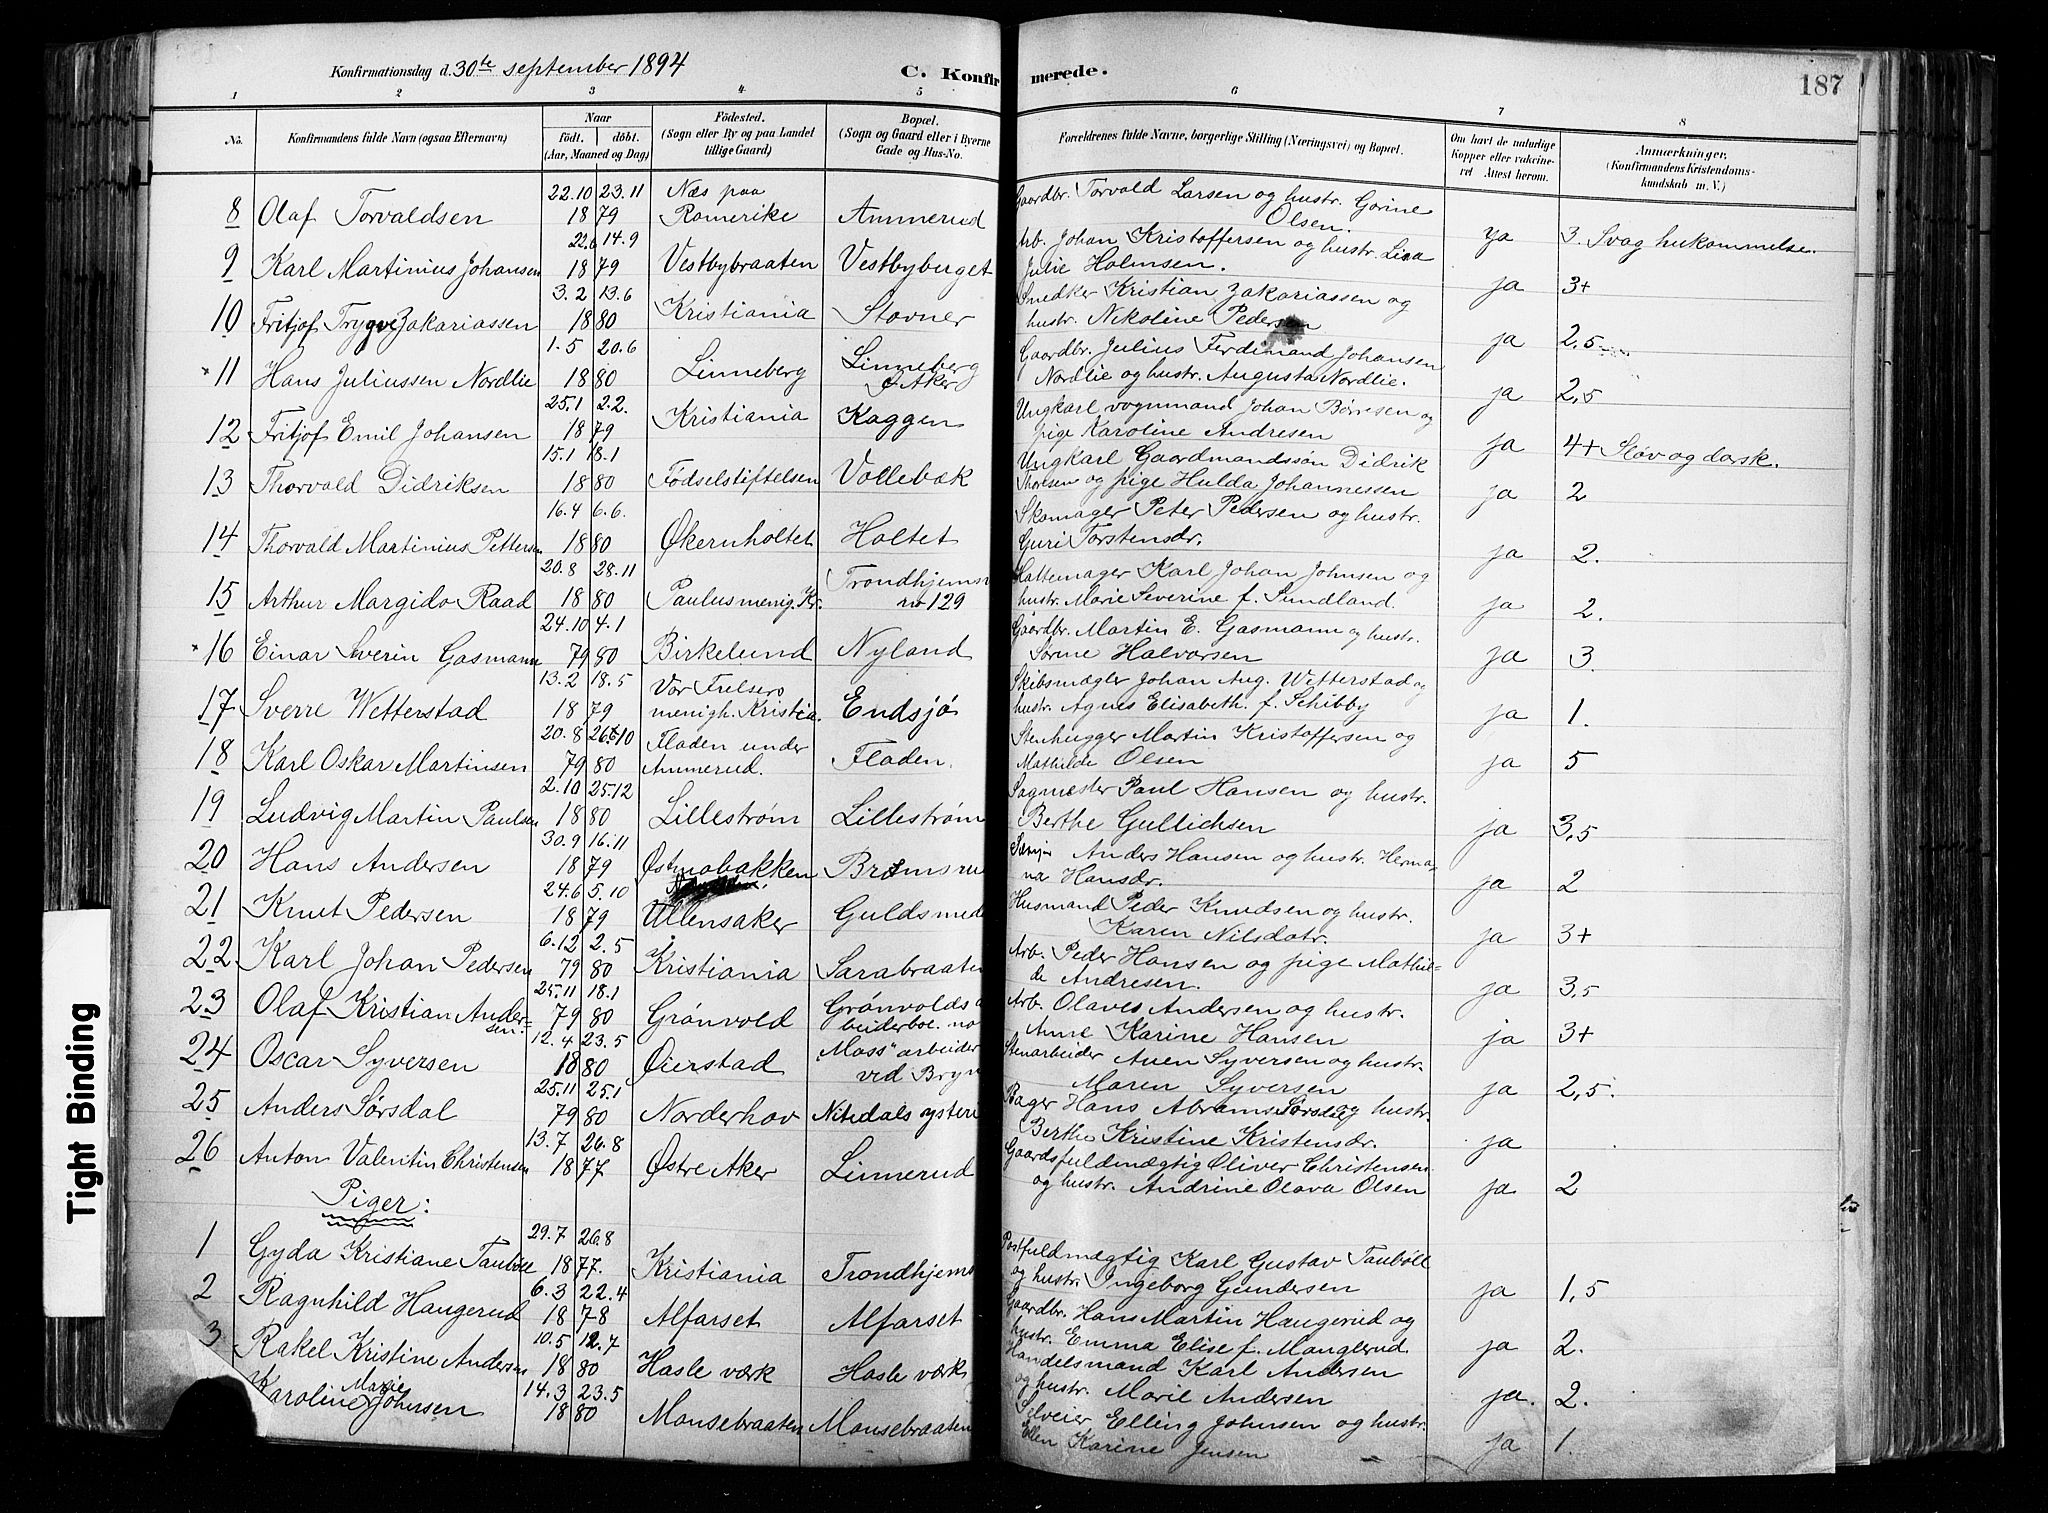 Konfirmationsdag d. 30te september 1894
C. Konfirmerede.
187
1 2 3 4 5 6 7 8
No. Konfirmandens fulde Navn (ogsaa Efternavn) Naar født. døbt. (Aar, Maaned og Dag) Fødested. (Sogn eller By og paa Landet tillige Gaard) Bopæl. (Sogn og Gaard eller i Byerne Gade og Hus-No. Forældrenes fulde Navne, borgerlige Stilling (Næringsvei) og Bopæl. Om havt de naturlige Kopper eller vakcineret Attest herom. Anmærkninger. (Konfirmandens Kristendomskundskab m. V.)
8 Olaf Torvaldsen 22.10 23.11 1879 Næs paa Romerike Ammerud Gaardbr. Torvald Larsen og hustr. Gorine Olsen. ja 3. Svag hukommelse.
9 Karl Martinius Johansen 22.6 14.9 1879 Vestbybraaten Vestbyberget Arb. Johan Kristoffersen og hustr. Lisa Julie Holmsen. ja 3+
10 Fritjof Trygve Zakariassen 3.2 13.6 1880 Kristiania Stovner Snedker Kristian Zakariassen og hustr. Nikoline Pedersen ja 2,5
11 Hans Juliussen Nordlie 1.5 20.6 1880 Linneberg Linneberg Ø. Aker Gaardbr. Julius Ferdinand Johansen Nordlie og hustr. Augusta Nordlie. ja 2,5
12 Fritjof Emil Johansen 25.1 2.2. 1879 Kristiania Kaggen Ungkarl vognmand Johan Børresen og pige Karoline Andresen ja 4+ Sløv og dorsk.
13 Thorvald Didriksen 15.1 18.1 1880 Fødselstiftelsen Vollebæk Ungkarl Gaardmandssøn Didrik Thoresen og pige Hulda Johannessen ja 2
14 Thorvald Martinius Pettersen 16.4 6.6. 1880 Økernholtet Holtet Skomager Peter Pedersen og hustr. Guri Torstensdr. ja 2.
15 Arthur Margido Raad 20.8 28.11 1880 Paulusmenig. Kr. Trondhjemsv no 129 Hattemager Karl Johan Johnsen og hustr. Marie Severine f. Sundland. ja 2.
16 Einar Sverin Gasmann 24.10 4.1 79 80 Birkelund Nyland Gaardbr. Martin E. Gasmann og hustr. Sørine Halvorsen ja 3.
17 Sverre Wetterstad 13.2 18.5 1879 Vor Frelsers menigh. Kristia. Endsjø Skibsmægler Johan Aug. Wetterstad og hustr. Agnes Elisabeth. f. Schibby ja 1.
18 Karl Oskar Martinsen 20.8 26.10 79 80 Fladen under Ammerud. Fladen. Stenhugger Martin Kristoffersen og Mathilde Olsen ja 5
19 Ludvig Martin Paulsen 2.10 25.12 1880 Lillestrøm Lillestrøm Sagmester Paul Hansen og hustr. Berthe Gullichsen ja 3,5
20 Hans Andersen 30.9 16.11 1879 Østmobakken Anders Hansen og hustr. Hermana Hansdr. ja 2
21 Knut Pedersen 24.6 5.10 1879 Ullensaker Guldsmede Husmand Peder Knudsen og hustr. Karen Nilsdatr. ja 3+
22 Karl Johan Pedersen 6.12 2.5 79 80 Kristiania Sarabraaten Arb. Peder Hansen og pige Mathilde Andresen. ja 3,5
23 Olaf Kristian Andersen. 25.11 18.1 79 80 Grønvold Grønvolds a beiderbol. no Arb. Olaves Andersen og hustr. Anne Karine Hansen ja 3+
24 Oscar Syversen 12.4 23.5 1880 Øierstad "Moss" arbeider ved Bryn Stenarbeider Auen Syversen og hustr. Maren Syversen ja 2,5.
25 Anders Sørsdal 25.11 25.1 79 80 Norderhov Nitedals ysteri Bager Hans Abrams. Sørsdal og hustr. Berthe Kristine Kristensdr. ja
26 Anton Valentin Christensen 13.7 26.8 1877 Østre Aker Linnerud Gaardsfuldmægtig Oliver Christensen og hustr. Andrine Olava Olsen ja 2
Piger:
1 Gyda Kristiane Taubøll 29.7 26.8 1877. Kristiania Trondhjems Postfuldmægtig Karl Gustav Taubøll og hustr. Ingeborg Gundersen ja 1,5
2 Ragnhild Haugerud 6.3 22.4 1878 Alfarset Alfarset Gaardbr. Hans Martin Haugerud og hustr. Emma Elise f. Manglerud. ja 2.
3 Rakel Kristine Andersen 10.5 12.7 1880 Hasle værk Hasle værk Handelsmand Karl Andersen og hustr. Marie Andersen ja. 2.
Karoline Marie Johnsen 14.3 23.5 1880 Mansebraaten Mansebraaten Selveier Elling Johnsen og hustr. Ellen Karine Jensen ja 1.
Tight Binding